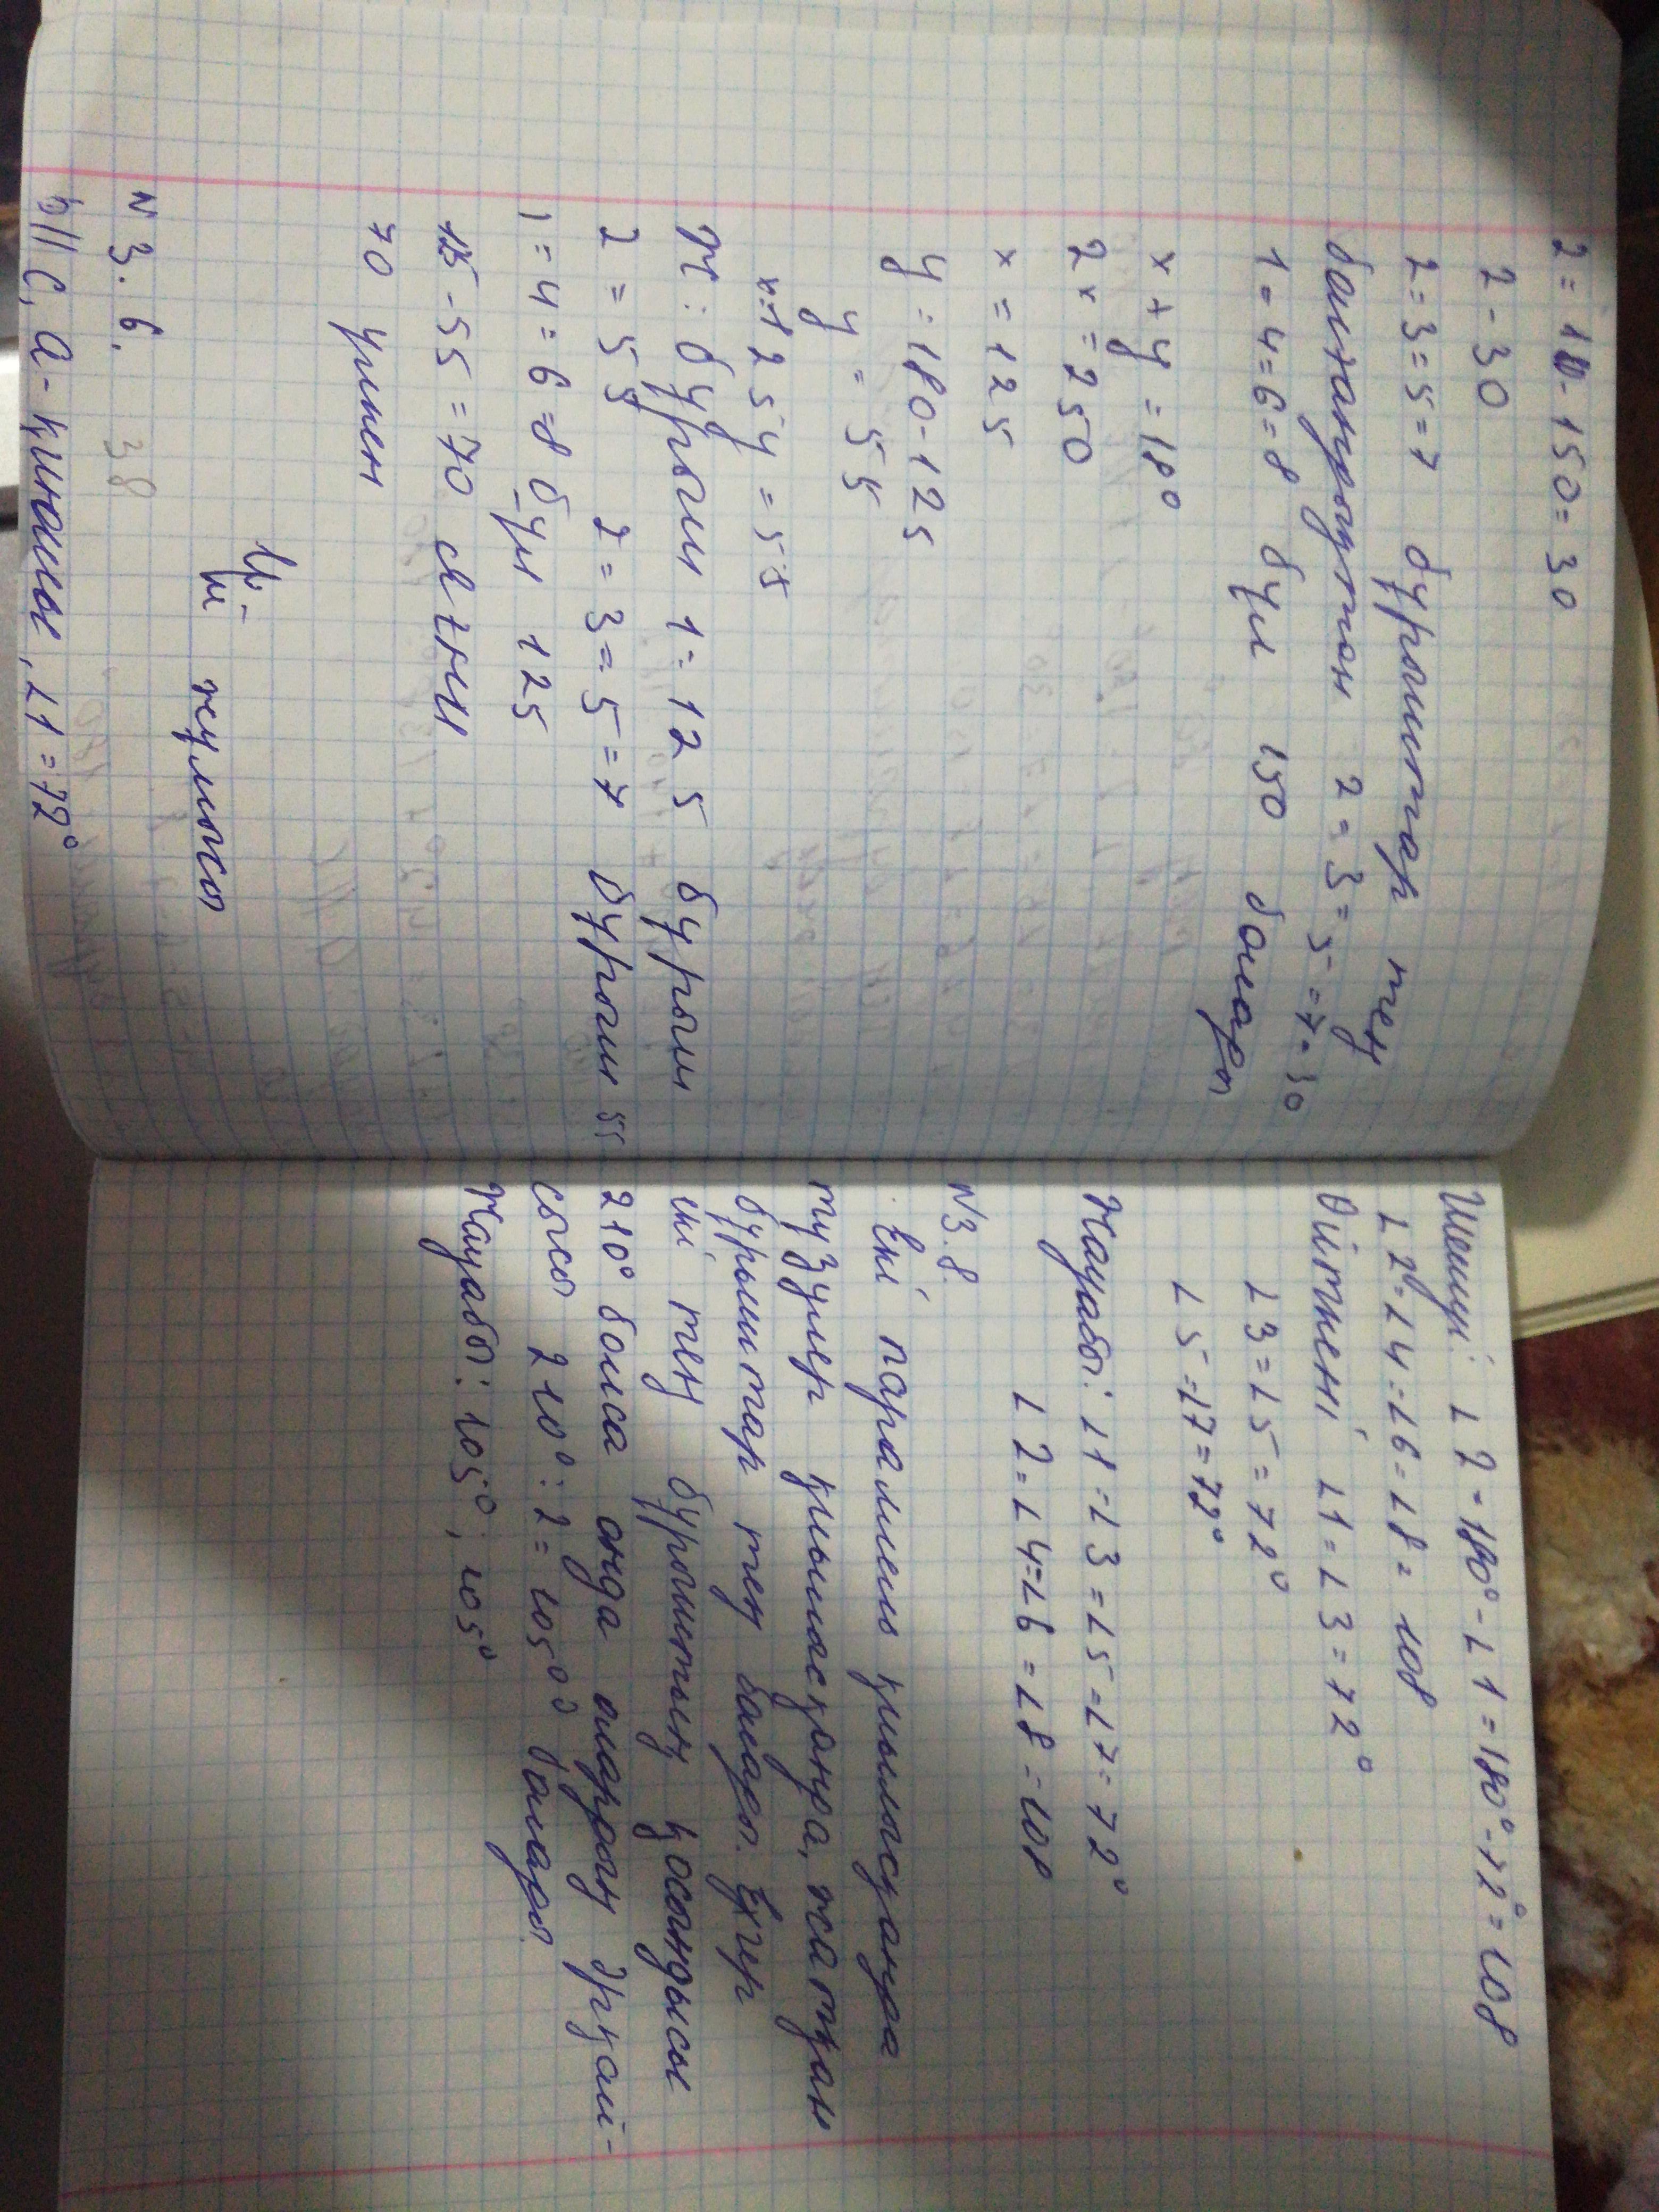 2 = 180 - 150 = 30
2 - 30
2 = 3 = 5 = 7 бұрыштар тең
болғандықтан 2 = 3 = 5 = 7 = 30
1 = 4 = 6 = 8 бұл 150 болады
x + y = 180
2x = 250
x = 125
y = 180 - 125
y = 55
x = 125 y = 55
Ж: бұрыш 1 = 125 бұрыш
2 = 55 2 = 3 = 5 = 7 бұрыш 55
1 = 4 = 6 = 8 бұл 125
125 - 55 = 70 яғни
70 үлкен
Үй
жұмысы
N 3. 6. 38
b || c, a - қиюшы, ∠1 = 72°
Шешуі: ∠2 = 180° - ∠1 = 180° - 72° = 108
∠2 = ∠4 = ∠6 = ∠8 = 108
Өйткені ∠1 = ∠3 = 72°
∠3 = ∠5 = 72°
∠5 = ∠7 = 72°
Жауабы: ∠1 = ∠3 = ∠5 = ∠7 = 72°
∠2 = ∠4 = ∠6 = ∠8 = 108
N3.8.
Екі параллель қиылысқанда
түзулер қиылысқанда, жатқан
бұрыштар тең болады. Егер
екі тең бұрыштың қосындысы
210° болса онда олардың әрқай-
сысы 210° : 2 = 105° болады
Жауабы: 105°; 105°